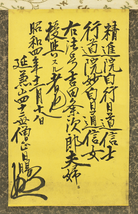 精進院自行日道信士
行道院妙日道信女
右法号吉田条次郎夫婦
授与之者也
昭和四年十一月十八日
延兼山四世僧正日勝